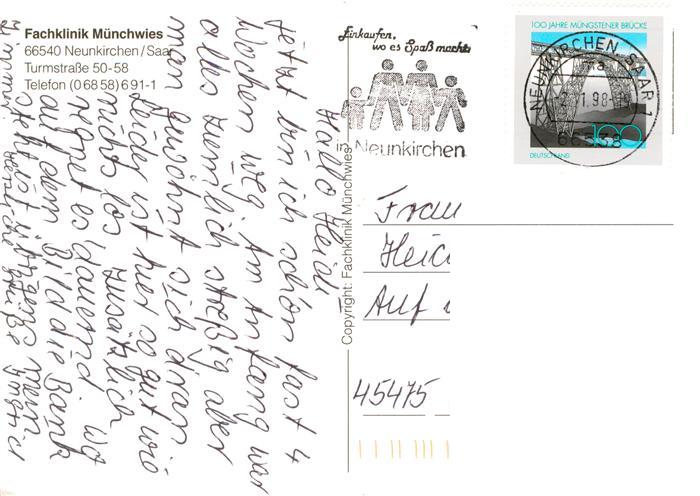 Fachklinik Münchwies
66540 Neunkirchen/Saar
Turmstraße 50-58
Telefon (0 68 58) 6 91-1
Hallo Heidi!
Jetzt bin ich schon fast 4
Wochen weg. Am Anfang war
alles ziemlich streßig aber
man gewöhnt sich daran
Leider ist hier so gut wie
nichts los. Zusätzlich
regnet es dauernd. Wo
auf dem Bild die Bank
steht ist übrigens mein
Zimmer. Herzliche Grüße
Copyright: Fachklinik Münchwies
Einkaufen,
wo es Spaß macht:
in Neunkirchen
100 JAHRE MÜNGSTENER BRÜCKE
100
DEUTSCHLAND
NEUNKIRCHEN, SAAR 1
66538
Frau
Heid
Auf
45475